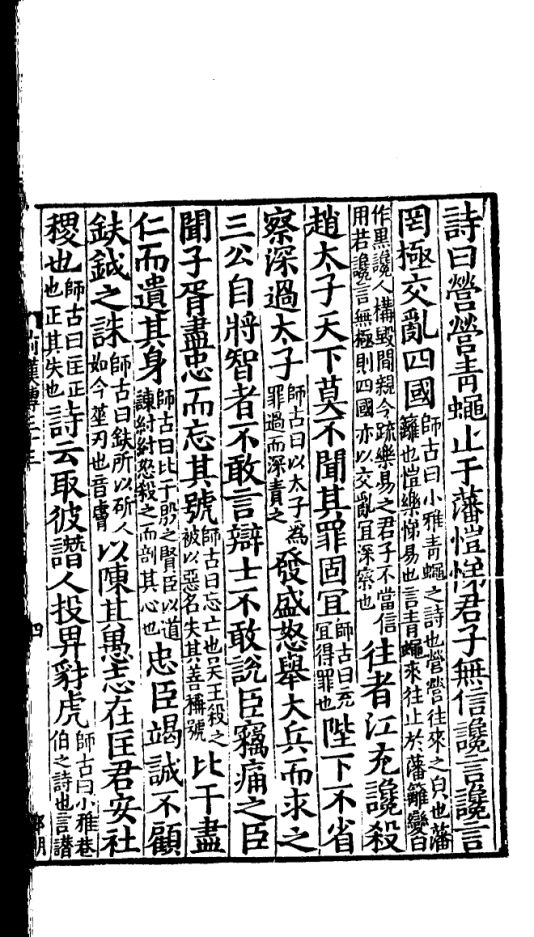 詩曰營營青蠅止于藩愷悌君子無信讒言讒言
罔極交亂四國
師古曰小雅青蠅之詩也營營往來之皃也藩
籬也愷樂悌易也言青蠅來往止於藩籬變白
作黒讒人構毀間親令踈樂易之君子不當信
用若讒言無極則四國亦以交亂宜深察也
往者江充讒殺
趙太子天下莫不聞其罪固宜
師古曰充
宜得罪也
陛下不省
察深過太子
師古曰以太子爲
罪過而深責之
發盛怒舉大兵而求之
三公自將智者不敢言辯士不敢說臣竊痛之臣
聞子胥盡忠而忘其號
師古曰忘亡也吳王殺之
被以惡名失其善稱號
比干盡
仁而遺其身
師古曰比干殷之賢臣以道
諫紂紂怒殺之而剖其心也
忠臣竭誠不顧
鈇鉞之誅
師古曰鈇所以斫人
如今莝刃也音膚
以陳其愚志在匡君安社
稷也
師古曰匡正
也正其失也
詩云取彼譖人投畀豺虎
師古曰小雅巷
伯之詩也言譖
四